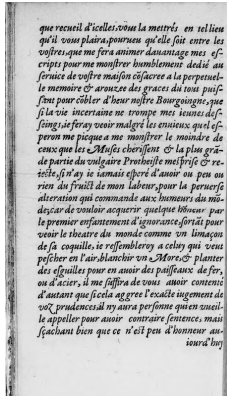 que recueil d'icelles, vous la mettrés en tel lieu
qu'il vous plaira, pourueu qu'elle soit entre les
vostres, que me fera animer dauantage mes es-
cripts pour me monstrer humblement dedié au
seruice de vostre maison cõsacree a la perpetuel-
le memoire & arouzee des graces du tout puis-
sant pour cõbler d'heur nostre Bourgoingne, que
si la vie incertaine ne trompe mes ieunes des-
seings, ie feray veoir malgré les enuieux qu'el es-
peron me picque a me monstrer le moindre de
ceux que les Muses cherissent & la plus grã-
de partie du vulgaire Protheiste mesprise & re-
iecte, si n'ay ie iamais esperé d'auoir ou peu ou
rien du fruict de mon labeur, pour la peruerse
alteration qui commande aux humeurs du mõ-
de, car de vouloir acquerir quelque honeur par
le premier enfantement d'ignorance sortãt pour
veoir le theatre du monde comme vn limaçon
de sa coquille, ie ressembleroy a celuy qui veut
pescher en l'air, blanchir vn More, & planter
des esguilles pour en auoir des paisseaux de fer,
ou d'acier, il me suffira de vous auoir contenté
d'autant que si cela aggree l'exacte iugement de
voz prudences, il ny aura personne qui en vueil-
le appeller pour auoir contraire sentence, mais
sçachant bien que ce n'est peu d'honneur au-
iourd'huy